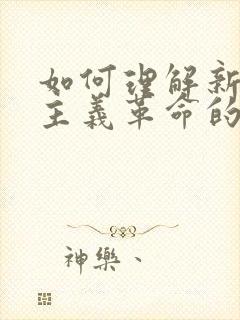 如何理解新
主義革命的
神樂、